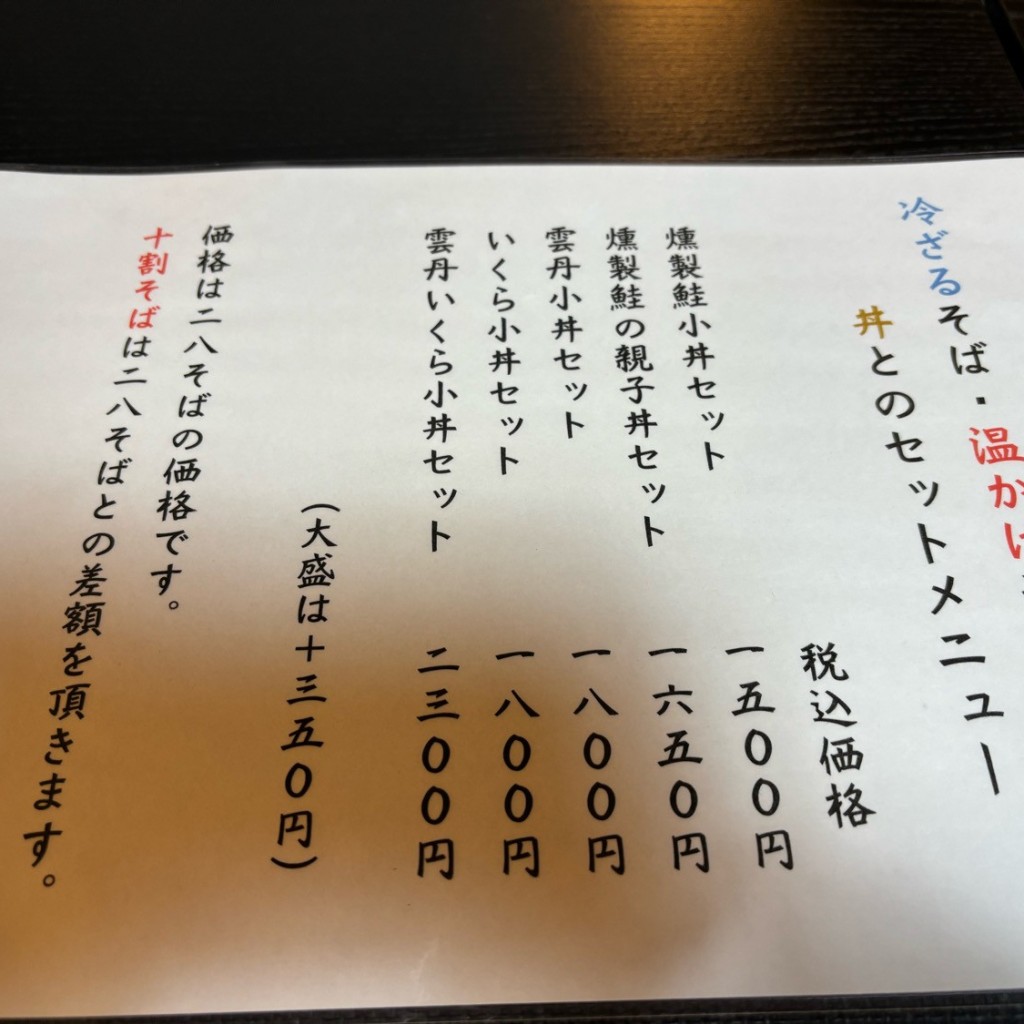 冷ざるそば・温かけ
丼とのセットメニュー
税込価格
燻製鮭小丼セット 一五〇〇円
燻製鮭の親子丼セット 一六五〇円
雲丹小丼セット 一八〇〇円
いくら小丼セット 一八〇〇円
雲丹いくら小丼セット 二三〇〇円
（大盛は＋三五〇円）
価格は二八そばの価格です。
十割そばは二八そばとの差額を頂きます。